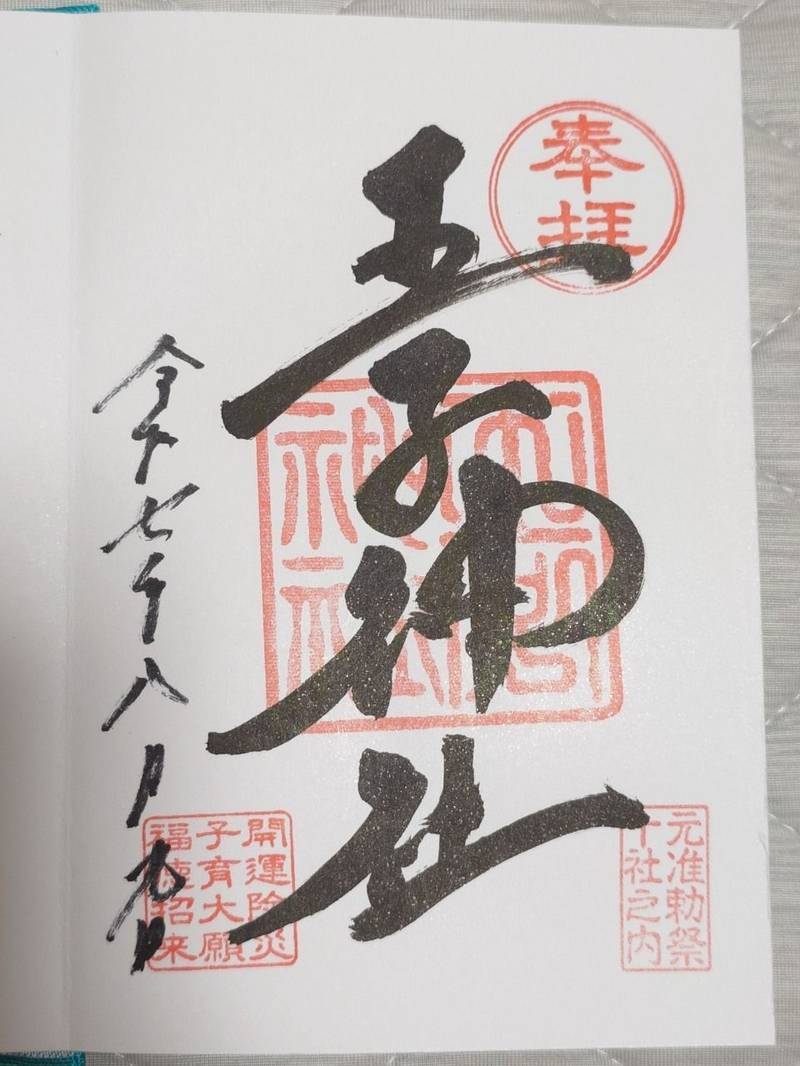 奉拝
元准勅祭
十社之内
王子神社
開運除災
子育大願
福徳招来
令和七年八月九日